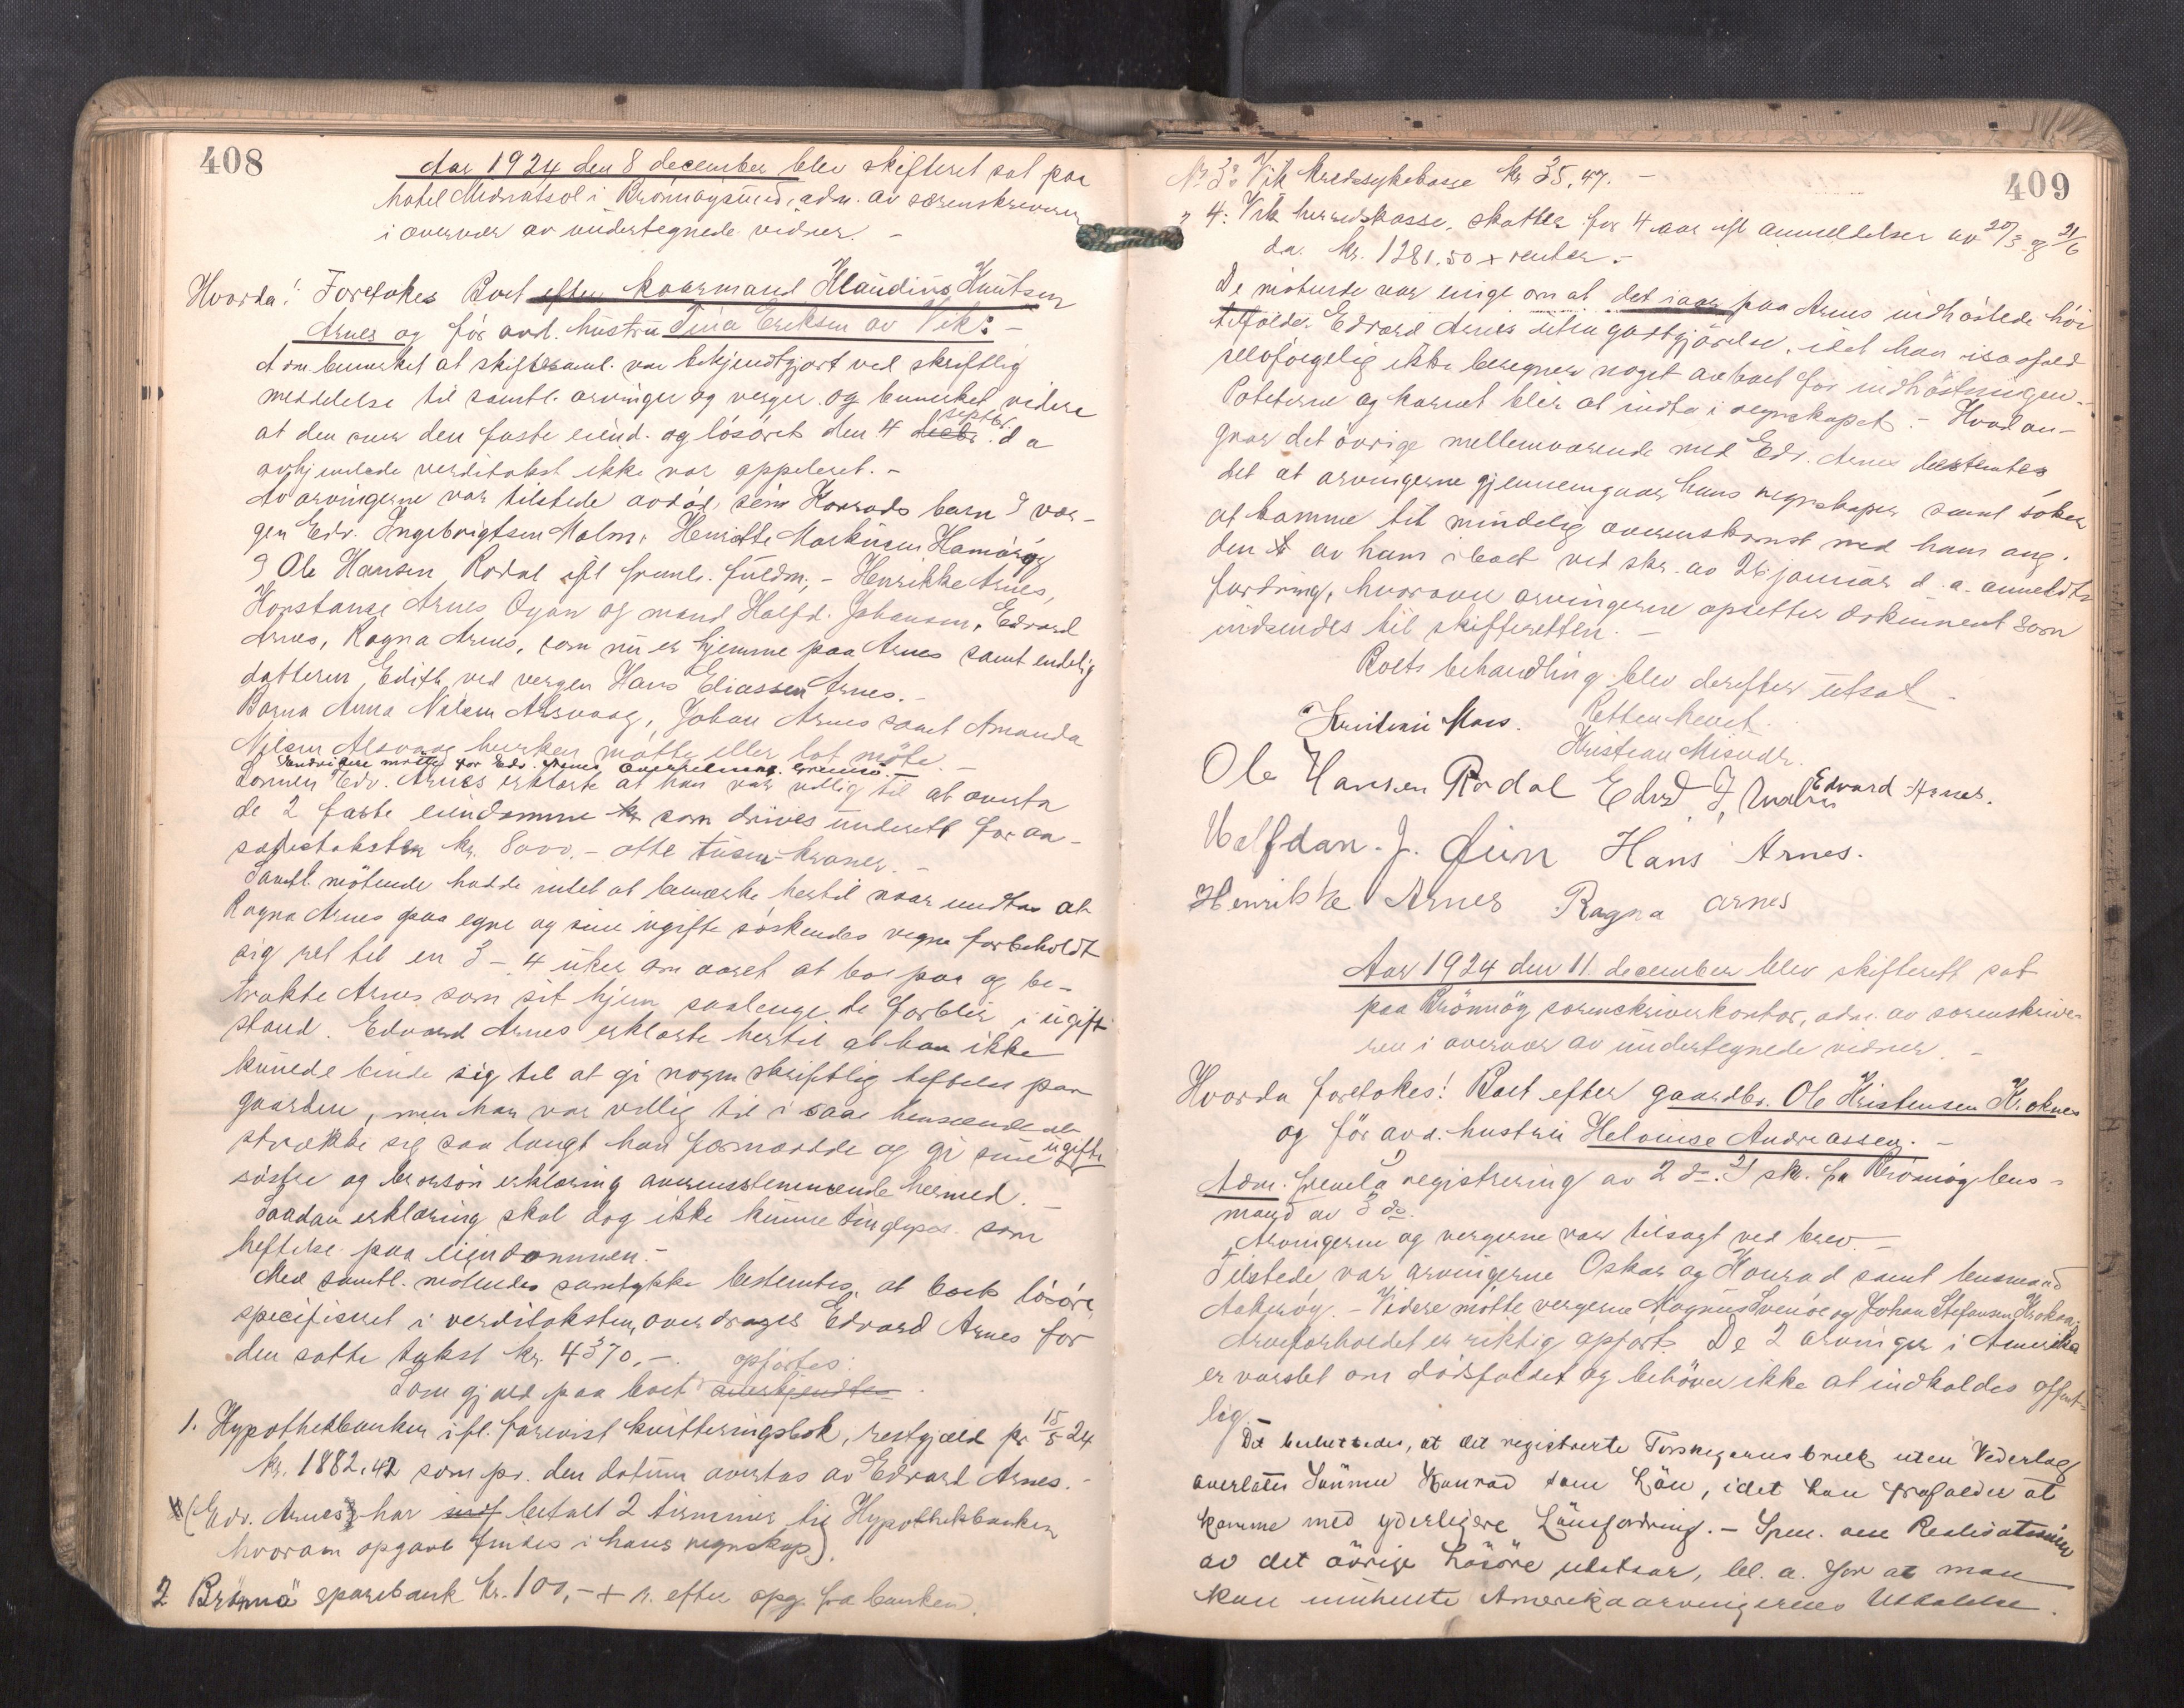 408
Aar 1924 den 8 december blev skifteret sat paa
hotel Midnatsol i Brønnøysund, adm. av sorenskriveren
i overvær av undertegnede vidner. –
Hvorda: Foretokes Boet efter kaarmand Klaudius Knutsen
Arnes og før avd. hustru Tina Eriksen av Vik: –
Adm. bemerket at skiftesaml. var bekjendtgjort ved skriftlig
meddelelse til samtl. arvinger og verger og bemerket videre
at den over den faste eiend. og løsøret den 4 decbr. septbr. d a
avhjemlede verditakst ikke var appeleret. –
Av arvingerne var tilstede avdød søn Konrads barn v. ver-
gen Edv. Ingebrigtsen Malm, Henriette Markussen Hamarøy
v Ole Hansen Rodal ifl freml. fuldm, – Henrikke Arnes,
Konstanse Arnes Øyan og mand Halfd. Johansen, Edvard
Arnes, Ragna Arnes, som nu er hjemme paa Arnes samt endelig
datteren Edith ved vergen Hans Eliassen Arnes. –
Barna Anna Nilsen Alsvaag, Johan Arnes samt Amanda
Nilsen Alsvaag hverken møtte eller lot møte. –
Endvidere møtte for Edv. Arnes overrettssakf.
Sønnen Edv. Arnes erklærte at han var villig til at overta
de 2 faste eiendomme som drives underett for aa-
sætestaksten kr. 8000.– otte tusen kroner. –
Samtl. møtende hadde intet at bemerke hertil naar undtas at
Ragna Arnes paa egne og sine ugifte søskendes vegne forbeholdt
sig ret til en 3 – 4 uker om aaret at bo paa og be-
trakte Arnes som sit hjem saalenge de forblir i ugift
stand. Edvard Arnes erklærte hertil at han ikke
kunde binde sig til at gi nogen skriftlig heftelse paa
gaarden, men han var villig til i saa henseende at
strække sig saa langt han formaadde og gi sine ugifte
søstre og brorsøn erklæring overensstemmende hermed. –
Saadan erklæring skal dog ikke kunne tinglyses som
heftelse paa eiendommen. –
Med samtl. møtendes samtykke bestemtes, at boets løsøre,
specifiseret i verditaksten, overdrages Edvard Arnes for
den satte takst kr. 4370,–.
Som gjæld paa boet anerkjendtes opførtes:
1. Hypothekbanken ifl. forevist kvitteringsbok, restgjæld pr 15/5 24
kr. 1882.42 som pr. den datum overtas av Edvard Arnes. –
(Edv. Arnes har betalt 2 terminer til Hypothekbanken
hvorom opgave findes i hans regnskap).
2 Brønnø sparebank kr. 100,– + r. efter opg fra banken.
409
No 3: Vik kredssykekasse kr 35.47. –
" 4: Vik herredskasse, skatter for 4 aar ifl anmeldelser av 20/3 og 21/6
da. kr. 1281.50 + renter. –
De møtende var enige om at det iaar paa Arnes indhøstede høi
tilfalder Edvard Arnes uten godtgjørelse, idet han isaafald
selvfølgelig ikke beregner noget av boet for indhøstningen. –
Poteterne og kornet blir at indta i regnskapet. – Hvad an-
gaar det øvrige mellemværende med Edv. Arnes bestemtes
det at arvingerne gjennemgaar hans regnskaper samt søker
at komme til mindelig overenskomst med ham ang.
den av ham i boet ved skr. av 26 januar d. a. anmeldte
fordring, hvorover arvingerne opsetter dokument som
indsendes til skifteretten. –
Boets behandling blev derefter utsat –
Retten hevet.
Kristian Misvær.
Ole Hansen Rodal Edvard Arnes.
Halfdan. J. Øien Hans Arnes.
Henrikke Arnes Ragna Arnes
Aar 1924 den 11. december blev skifterett sat
paa Brønnøy sorenskriverkontor, adm. av sorenskrive-
ren i overvær av undertegnede vidner. –
Hvorda foretokes: Boet efter gaardbr. Ole Kristensen Kroknes
og før avd. hustru Helouise Andreassen. –
Adm. fremla registrering av 2 ds. & skr. fra Brønnøy lens-
mand av 3 ds.
Arvingerne og vergerne var tilsagt ved brev. –
Tilstede var arvingerne Oskar og Konrad samt lensmand
Aakerøy. – Videre møtte vergerne Magnus Svenøe og Johan Stefansen Kroknes
Arveforholdet er riktig opført. De 2 arvinger i Amerika
er varslet om dødsfaldet og behøver ikke at indkaldes offent-
lig. –
Det besluttedes, at det registrerte Torskegarnsbruk uten Vederlag
overlates Sønnen Konrad som Løn, idet han frafalder at
komme med yderligere Lønsfordring. – Spm. om Realisationen
av det øvrige Løsøre utstaar, bl. a. for at man
kan indhente Amerikaarvingernes Uttalelse.